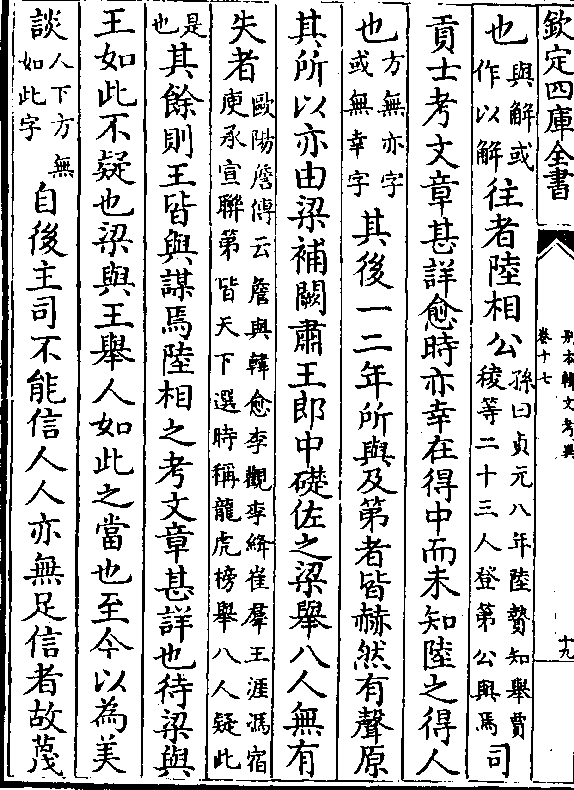 欽定四庫全書
別本韓文考異
卷十七
十九
也與解或作以解往者陸相公孫曰貞元八年陸贄知舉賈稜等二十三人登第公與焉司
貢士考文章甚詳愈時亦幸在得中而未知陸之得人
也方無亦字或無幸字其後一二年所與及第者皆赫然有聲原
其所以亦由梁補闕肅王郎中礎佐之梁舉八人無有
失者歐陽詹傳云詹與韓愈李觀李絳崔羣王涯馮宿庾承宣聯第皆天下選時稱龍虎榜舉八人疑此
是也其餘則王皆與謀焉陸相之考文章甚詳也待梁與
王如此不疑也梁與王舉人如此之當也至今以為美
談人下方無如此字自後主司不能信人人亦無足信者故蔑